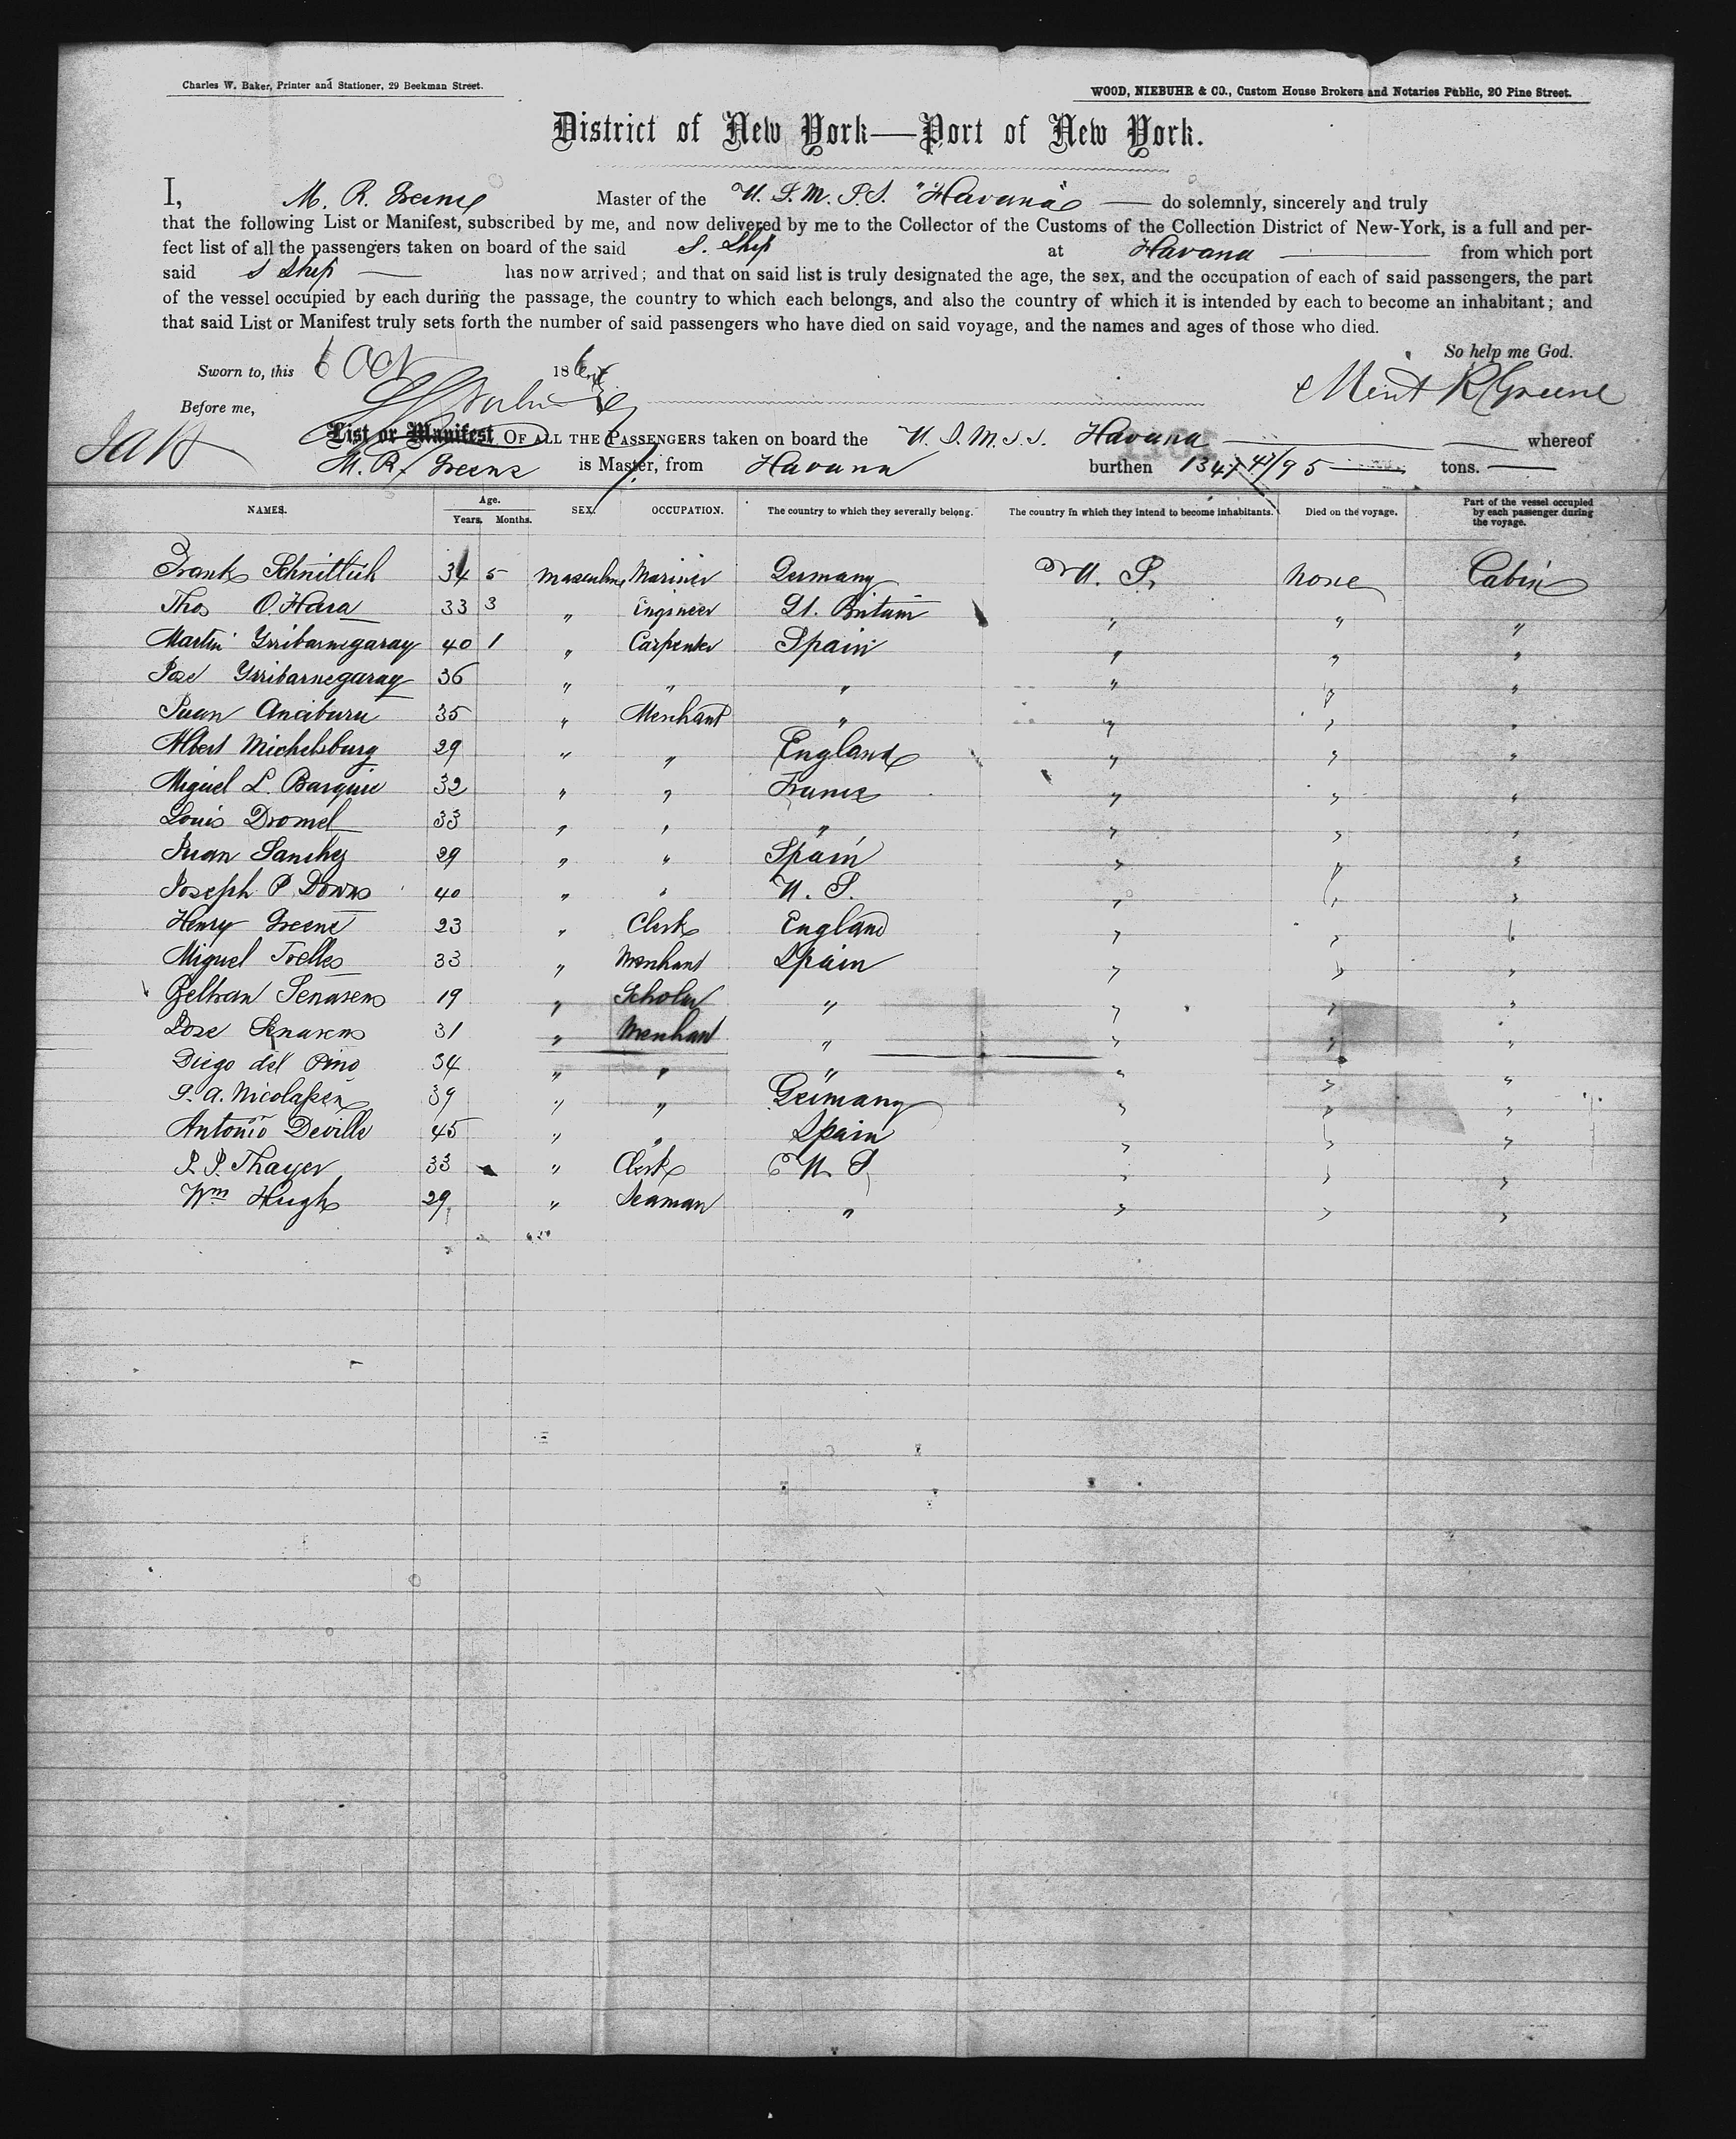 Charles W. Baker, Printer and Stationer, 29 Beekman Street.
WOOD, NIEBUHR & CO., Custom House Brokers and Notaries Public, 20 Pine Street.
District of New York—Port of New York.
I, M. R. Greene Master of the U. S. M. S. S. "Havana" — do solemnly, sincerely and truly
that the following List or Manifest, subscribed by me, and now delivered by me to the Collector of the Customs of the Collection District of New-York, is a full and per-
fect list of all the passengers taken on board of the said S. Ship at Havana — from which port
said S Ship — has now arrived; and that on said list is truly designated the age, the sex, and the occupation of each of said passengers, the part
of the vessel occupied by each during the passage, the country to which each belongs, and also the country of which it is intended by each to become an inhabitant; and
that said List or Manifest truly sets forth the number of said passengers who have died on said voyage, and the names and ages of those who died.
So help me God.
Sworn to, this 6 Oct 186
Ment R Greene
Before me,
List or Manifest OF ALL THE PASSENGERS taken on board the U. S. M. S. S. Havana — whereof
M. R. Greene is Master, from Havana burthen 1347 47/95 — tons. —
NAMES. Age. Years. Months. SEX. OCCUPATION. The country to which they severally belong. The country in which they intend to become inhabitants. Died on the voyage. Part of the vessel occupied by each passenger during the voyage.
Frank Schnittich 34 5 Masculine Mariner Germany U. S. None Cabin
Thos O.Hara 33 3 " Engineer Gt. Britain " " "
Martin Yrribarnegaray 40 1 " Carpenter Spain " " "
Jose Yrribarnegaray 36 " " " " " "
Juan Anciburu 35 " Merchant " " " "
Albert Michelsburg 29 " " England " " "
Miguel L. Barquie 32 " " France " " "
Louis Dromel 33 " " " " " "
Juan Sanchez 29 " " Spain " " "
Joseph P Downs 40 " " U. S. " " "
Henry Greene 23 " Clerk England " " "
Miguel Toelles 33 " Merchant Spain " " "
Beltran Senarens 19 " Scholar " " " "
Jose Senarens 31 " Merchant " " " "
Diego del Pino 34 " " " " " "
G. A. Nicolassen 39 " " Germany " " "
Antonio Deville 45 " " Spain " " "
P. P. Thayer 33 " Clerk U. S. " " "
Wm Hugh 29 " Seaman " " " "